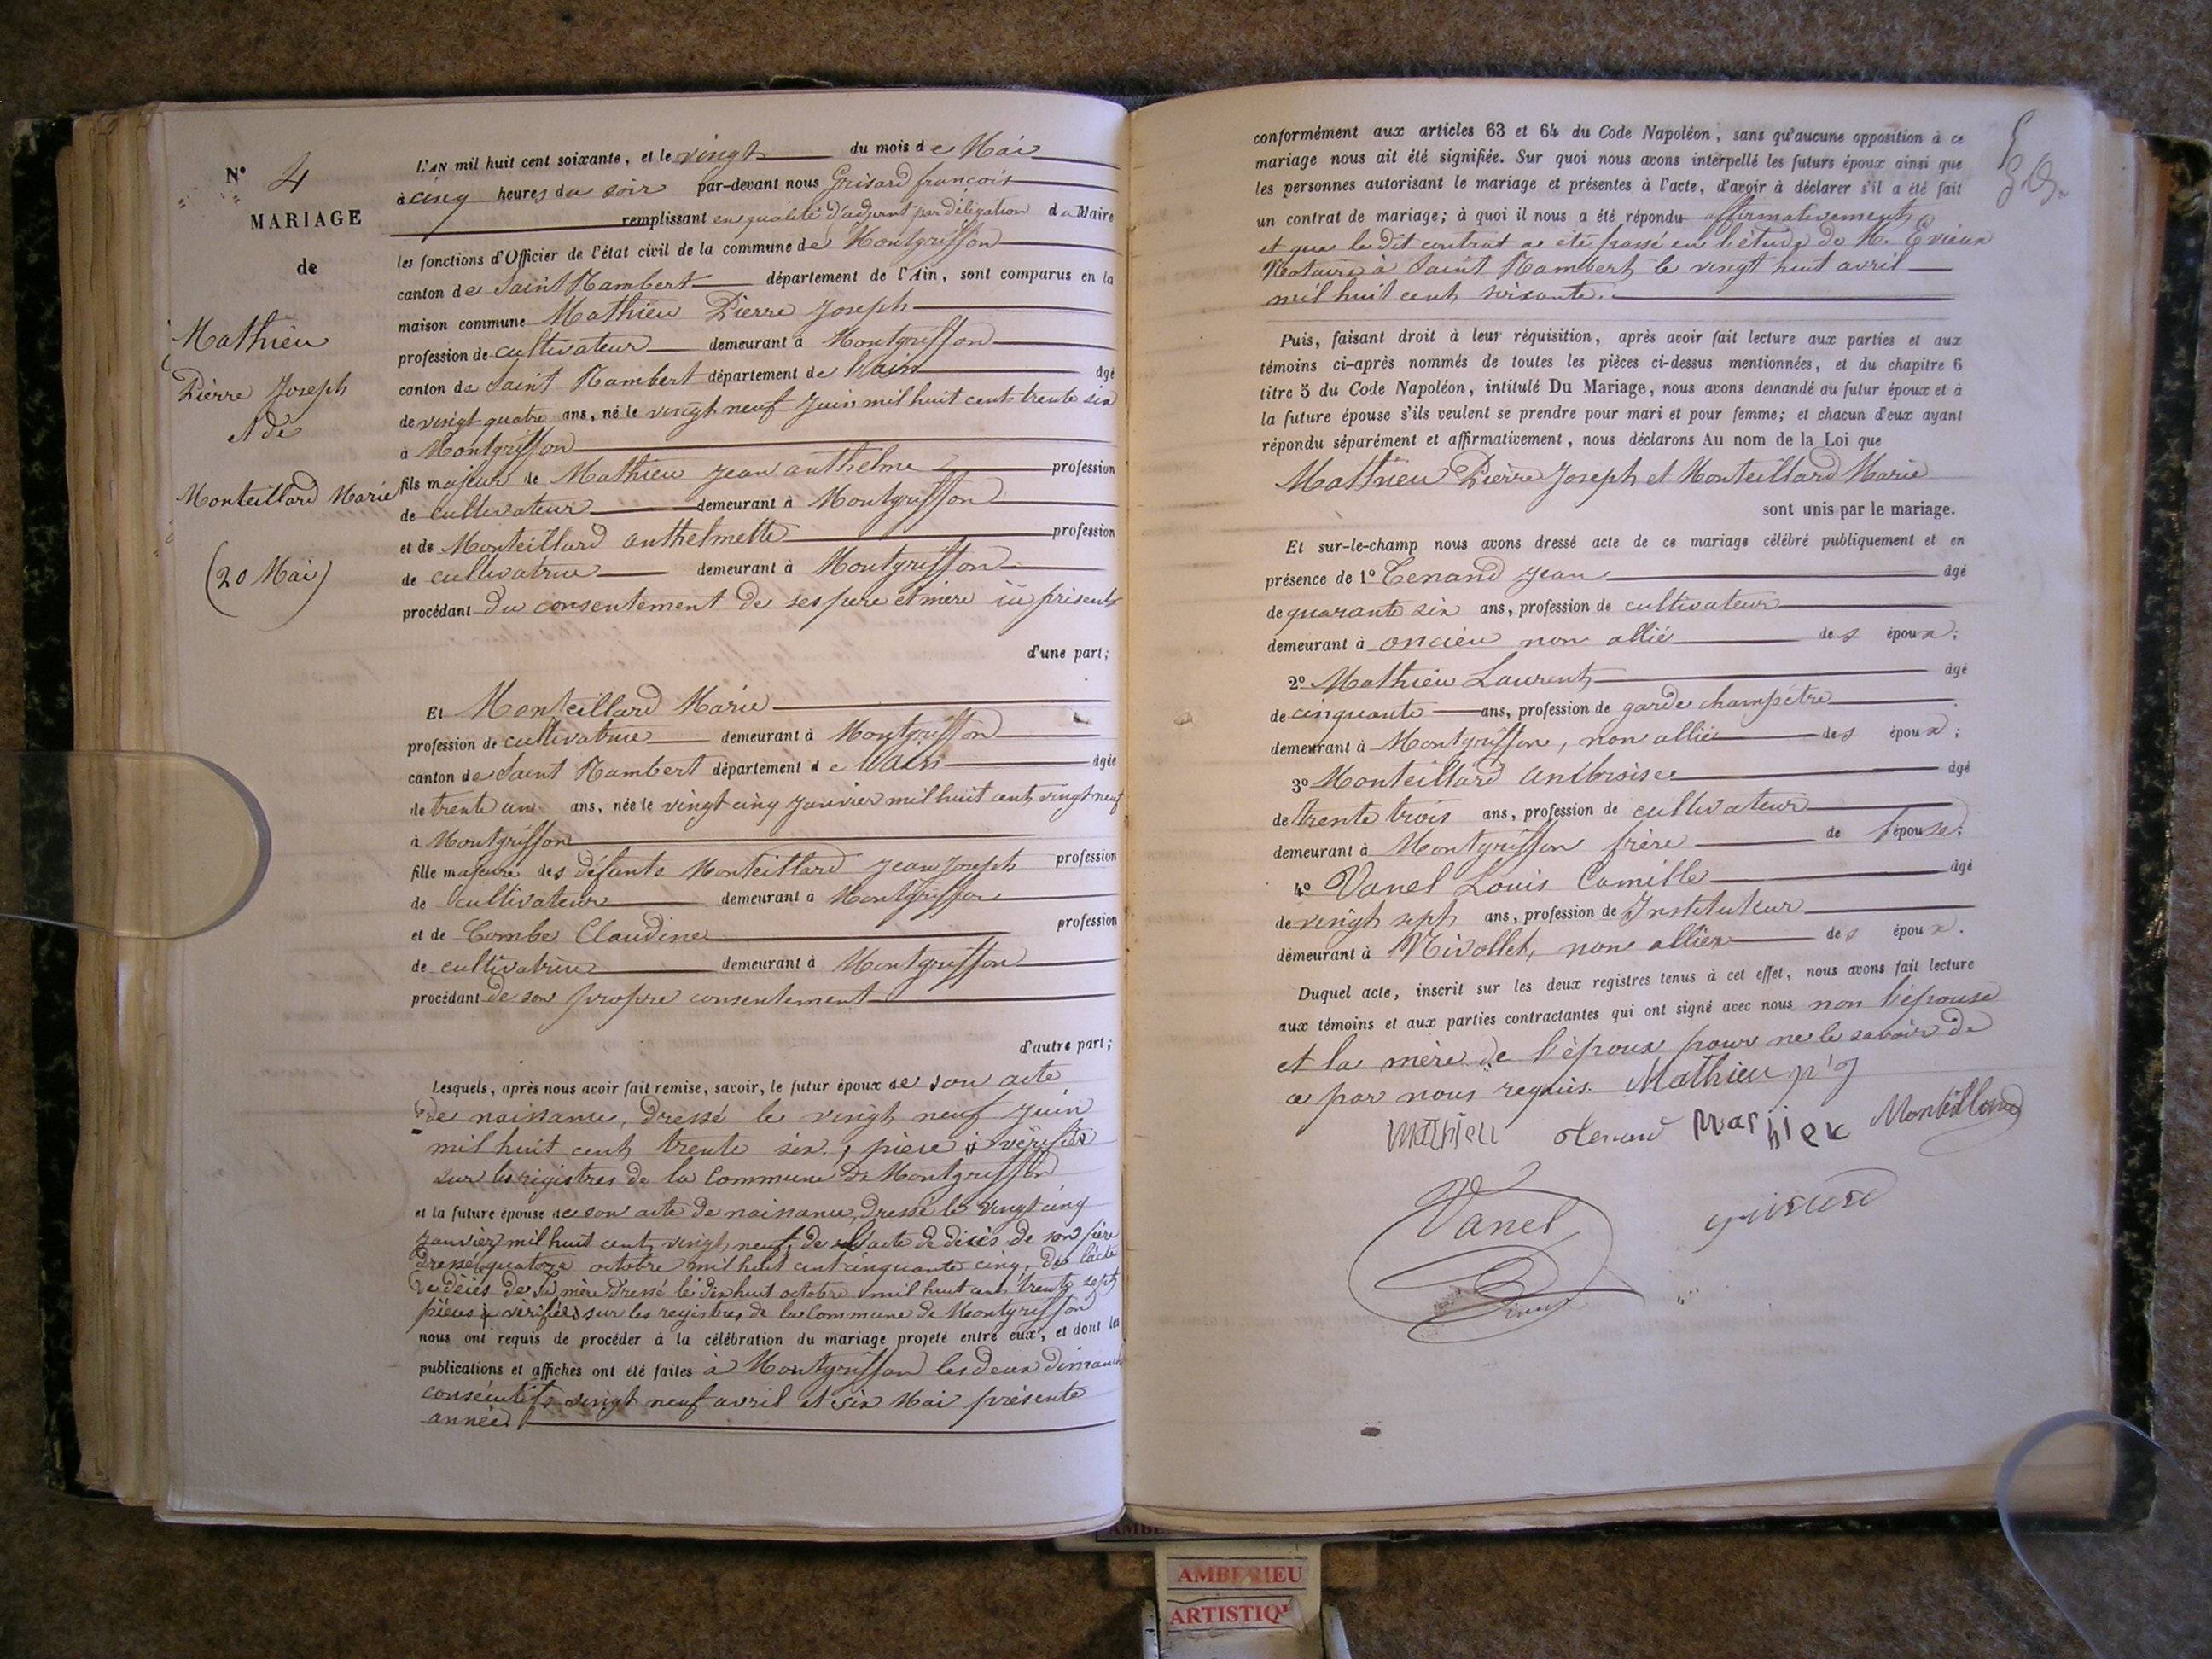 N° 4
MARIAGE
de
Mathieu
Pierre Joseph
et de
Monteillard Marie
(20 Mai)
L'AN mil huit cent soixante, et le vingt du mois de Mai
à cinq heures du soir par-devant nous Grisard françois
remplissant en qualité d'adjoint par délégation du Maire
les fonctions d'Officier de l'état civil de la commune de Montgriffon
canton de Saint Rambert département de l'Ain, sont comparus en la
maison commune Mathieu Pierre Joseph
profession de cultivateur demeurant à Montgriffon
canton de Saint Rambert département de l'ain âgé
de vingt quatre ans, né le vingt neuf Juin mil huit cent trente six
à Montgriffon
fils majeur de Mathieu Jean anthelme profession
de cultivateur demeurant à Montgriffon
et de Monteillard anthelmette profession
de cultivatrice demeurant à Montgriffon
procédant du consentement de ses pere et mère ici présents
d'une part;
Et Monteillard Marie
profession de cultivatrice demeurant à Montgriffon
canton de Saint Rambert département de l'Ain âgée
de trente un ans, née le vingt cinq Janvier mil huit cent vingt neuf
à Montgriffon
fille majeure des défunts Monteillard Jean Joseph profession
de cultivateur demeurant à Montgriffon
et de Combe Claudine profession
de cultivatrice demeurant à Montgriffon
procédant de son propre consentement
d'autre part;
Lesquels, après nous avoir fait remise, savoir, le futur époux de son acte
de naissance, dressé le vingt neuf Juin
mil huit cent trente six, pièce vérifiée
sur les registres de la Commune de Montgriffon
et la future épouse de son acte de naissance, dressé le vingt cinq
Janvier mil huit cent vingt neuf, de l'acte de décès de son père
dressé le quatorze octobre mil huit cent cinquante cinq, de l'acte
de décès de sa mère dressé le dix huit octobre mil huit cent trente sept
pièces vérifiées sur les registres de la Commune de Montgriffon
nous ont requis de procéder à la célébration du mariage projeté entre eux, et dont les
publications et affiches ont été faites à Montgriffon les deux dimanches
consécutifs vingt neuf avril et six Mai présente
année.
conformément aux articles 63 et 64 du Code Napoléon, sans qu'aucune opposition à ce
mariage nous ait été signifiée. Sur quoi nous avons interpellé les futurs époux ainsi que
les personnes autorisant le mariage et présentes à l'acte, d'avoir à déclarer s'il a été fait
un contrat de mariage; à quoi il nous a été répondu affirmativement
et que le dit contrat a été passé en l'étude de M. Evieux
Notaire à Saint Rambert le vingt huit avril
mil huit cent soixante.
Puis, faisant droit à leur réquisition, après avoir fait lecture aux parties et aux
témoins ci-après nommés de toutes les pièces ci-dessus mentionnées, et du chapitre 6
titre 5 du Code Napoléon, intitulé Du Mariage, nous avons demandé au futur époux et à
la future épouse s'ils veulent se prendre pour mari et pour femme; et chacun d'eux ayant
répondu séparément et affirmativement, nous déclarons Au nom de la Loi que
Mathieu Pierre Joseph et Monteillard Marie
sont unis par le mariage.
Et sur-le-champ nous avons dressé acte de ce mariage célébré publiquement et en
présence de 1° Tenand Jean âgé
de quarante six ans, profession de cultivateur
demeurant à oncieu non allié des époux;
2° Mathieu Laurent âgé
de cinquante ans, profession de garde champêtre
demeurant à Montgriffon, non allié des époux;
3° Monteillard Ambroise âgé
de trente trois ans, profession de cultivateur
demeurant à Montgriffon frère de l'épouse;
4° Vanel Louis Camille âgé
de vingt sept ans, profession de Instituteur
demeurant à Nivollet, non allié des époux.
Duquel acte, inscrit sur les deux registres tenus à cet effet, nous avons fait lecture
aux témoins et aux parties contractantes qui ont signé avec nous non l'épouse
et la mère de l'époux pour ne le savoir de
ce par nous requis. Mathieu p j
Mathieu tenand Mathieu Monteillard
Vanel grisard
AMBERIEU
ARTISTIQ